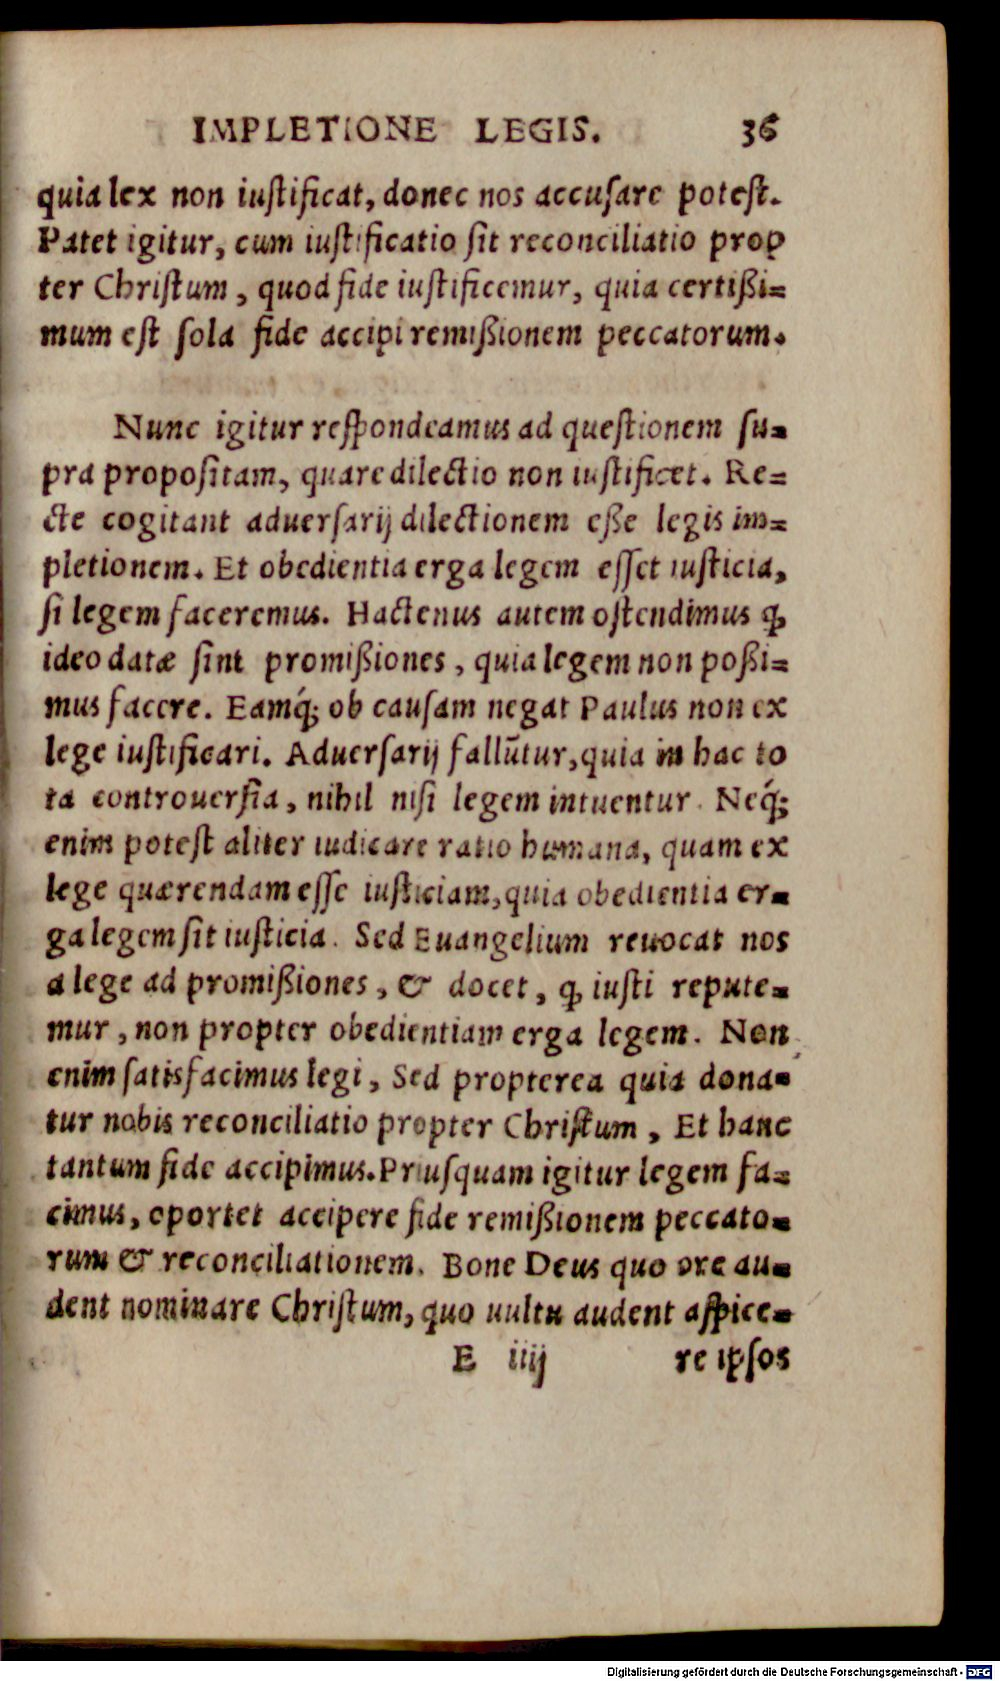 IMPLETIONE LEGIS. 36
quia lex non iuſtificat, donec nos accuſare poteſt.
Patet igitur, cum iuſtificatio ſit reconciliatio prop
ter Chriſtum, quod fide iuſtificemur, quia certißi-
mum eſt ſola fide accipi remißionem peccatorum.
Nunc igitur reſpondeamus ad queſtionem ſu-
pra propoſitam, quare dilectio non iuſtificet. Re-
cte cogitant aduerſarij dilectionem eße legis im-
pletionem. Et obedientia erga legem eſſet iuſticia,
ſi legem faceremus. Hactenus autem oſtendimus ꝙ
ideo datæ ſint promißiones, quia legem non poßi-
mus facere. Eamq́; ob cauſam negat Paulus non ex
lege iuſtificari. Aduerſarij fallũtur, quia in hac to
ta controuerſia, nihil niſi legem intuentur. Neq́;
enim poteſt aliter iudicare ratio humana, quam ex
lege quærendam eſſe iuſticiam, quia obedientia er-
ga legem ſit iuſticia. Sed Euangelium reuocat nos
a lege ad promißiones, & docet, ꝙ iuſti repute-
mur, non propter obedientiam erga legem. Non
enim ſatisfacimus legi, Sed propterea quia dona-
tur nobis reconciliatio propter Chriſtum, Et hanc
tantum fide accipimus. Priuſquam igitur legem fa-
cimus, oportet accipere fide remißionem peccato-
rum & reconciliationem. Bone Deus quo ore au-
dent nominare Chriſtum, quo uultu audent aſpice-
E iiij re ipſos
Digitalisierung gefördert durch die Deutsche Forschungsgemeinschaft - DFG